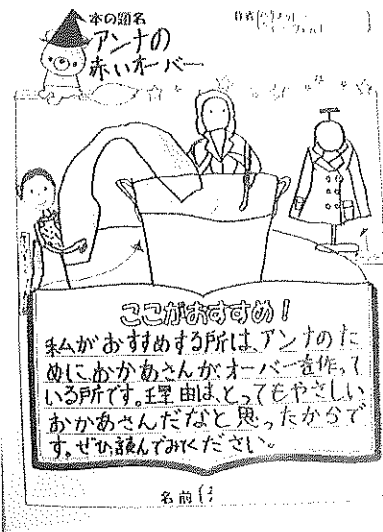 本の題名
アンナの
赤いオーバー
作者
ここがおすすめ!
私がおすすめする所は、アンナのた
めにおかあさんが、オーバーを作って
いる所です。理由は、とってもやさしい
おかあさんだなと思ったからで
す。ぜひ、読んでみてください。
名前